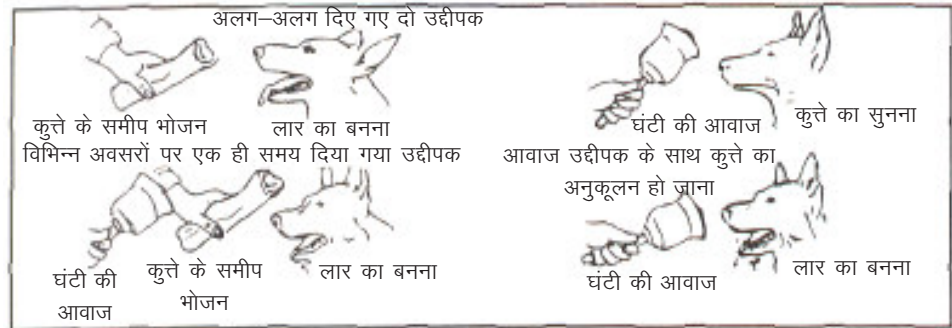 अलग–अलग दिए गए दो उद्दीपक
कुत्ते के समीप भोजन
लार का बनना
घंटी की आवाज
कुत्ते का सुनना
विभिन्न अवसरों पर एक ही समय दिया गया उद्दीपक
आवाज उद्दीपक के साथ कुत्ते का
अनुकूलन हो जाना
घंटी की
आवाज
कुत्ते के समीप
भोजन
लार का बनना
घंटी की आवाज
लार का बनना